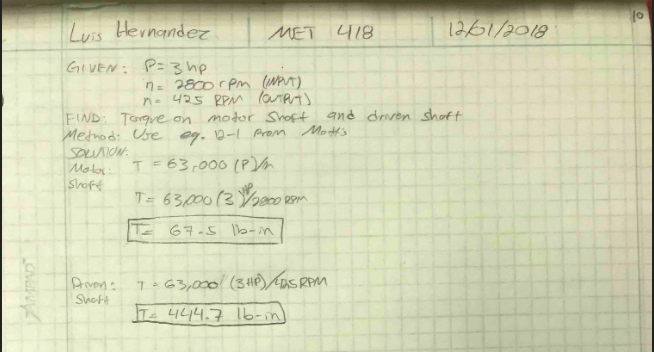 Luis Hernandez MET 418 12/01/2018 10
GIVEN: P= 3 hp
n= 2800 rpm (INPUT)
n= 425 RPM (OUTPUT)
FIND: Torque on motor Shaft and driven shaft
Method: Use eq. 12-1 from Mott's
SOLUTION:
Motor: T = 63,000 (P)/n
Shaft
T= 63,000 (3 HP)/2800 RPM
T= 67.5 lb-in
Driven: T = 63,000 (3HP)/425 RPM
Shaft
T= 444.7 lb-in
AMPAD